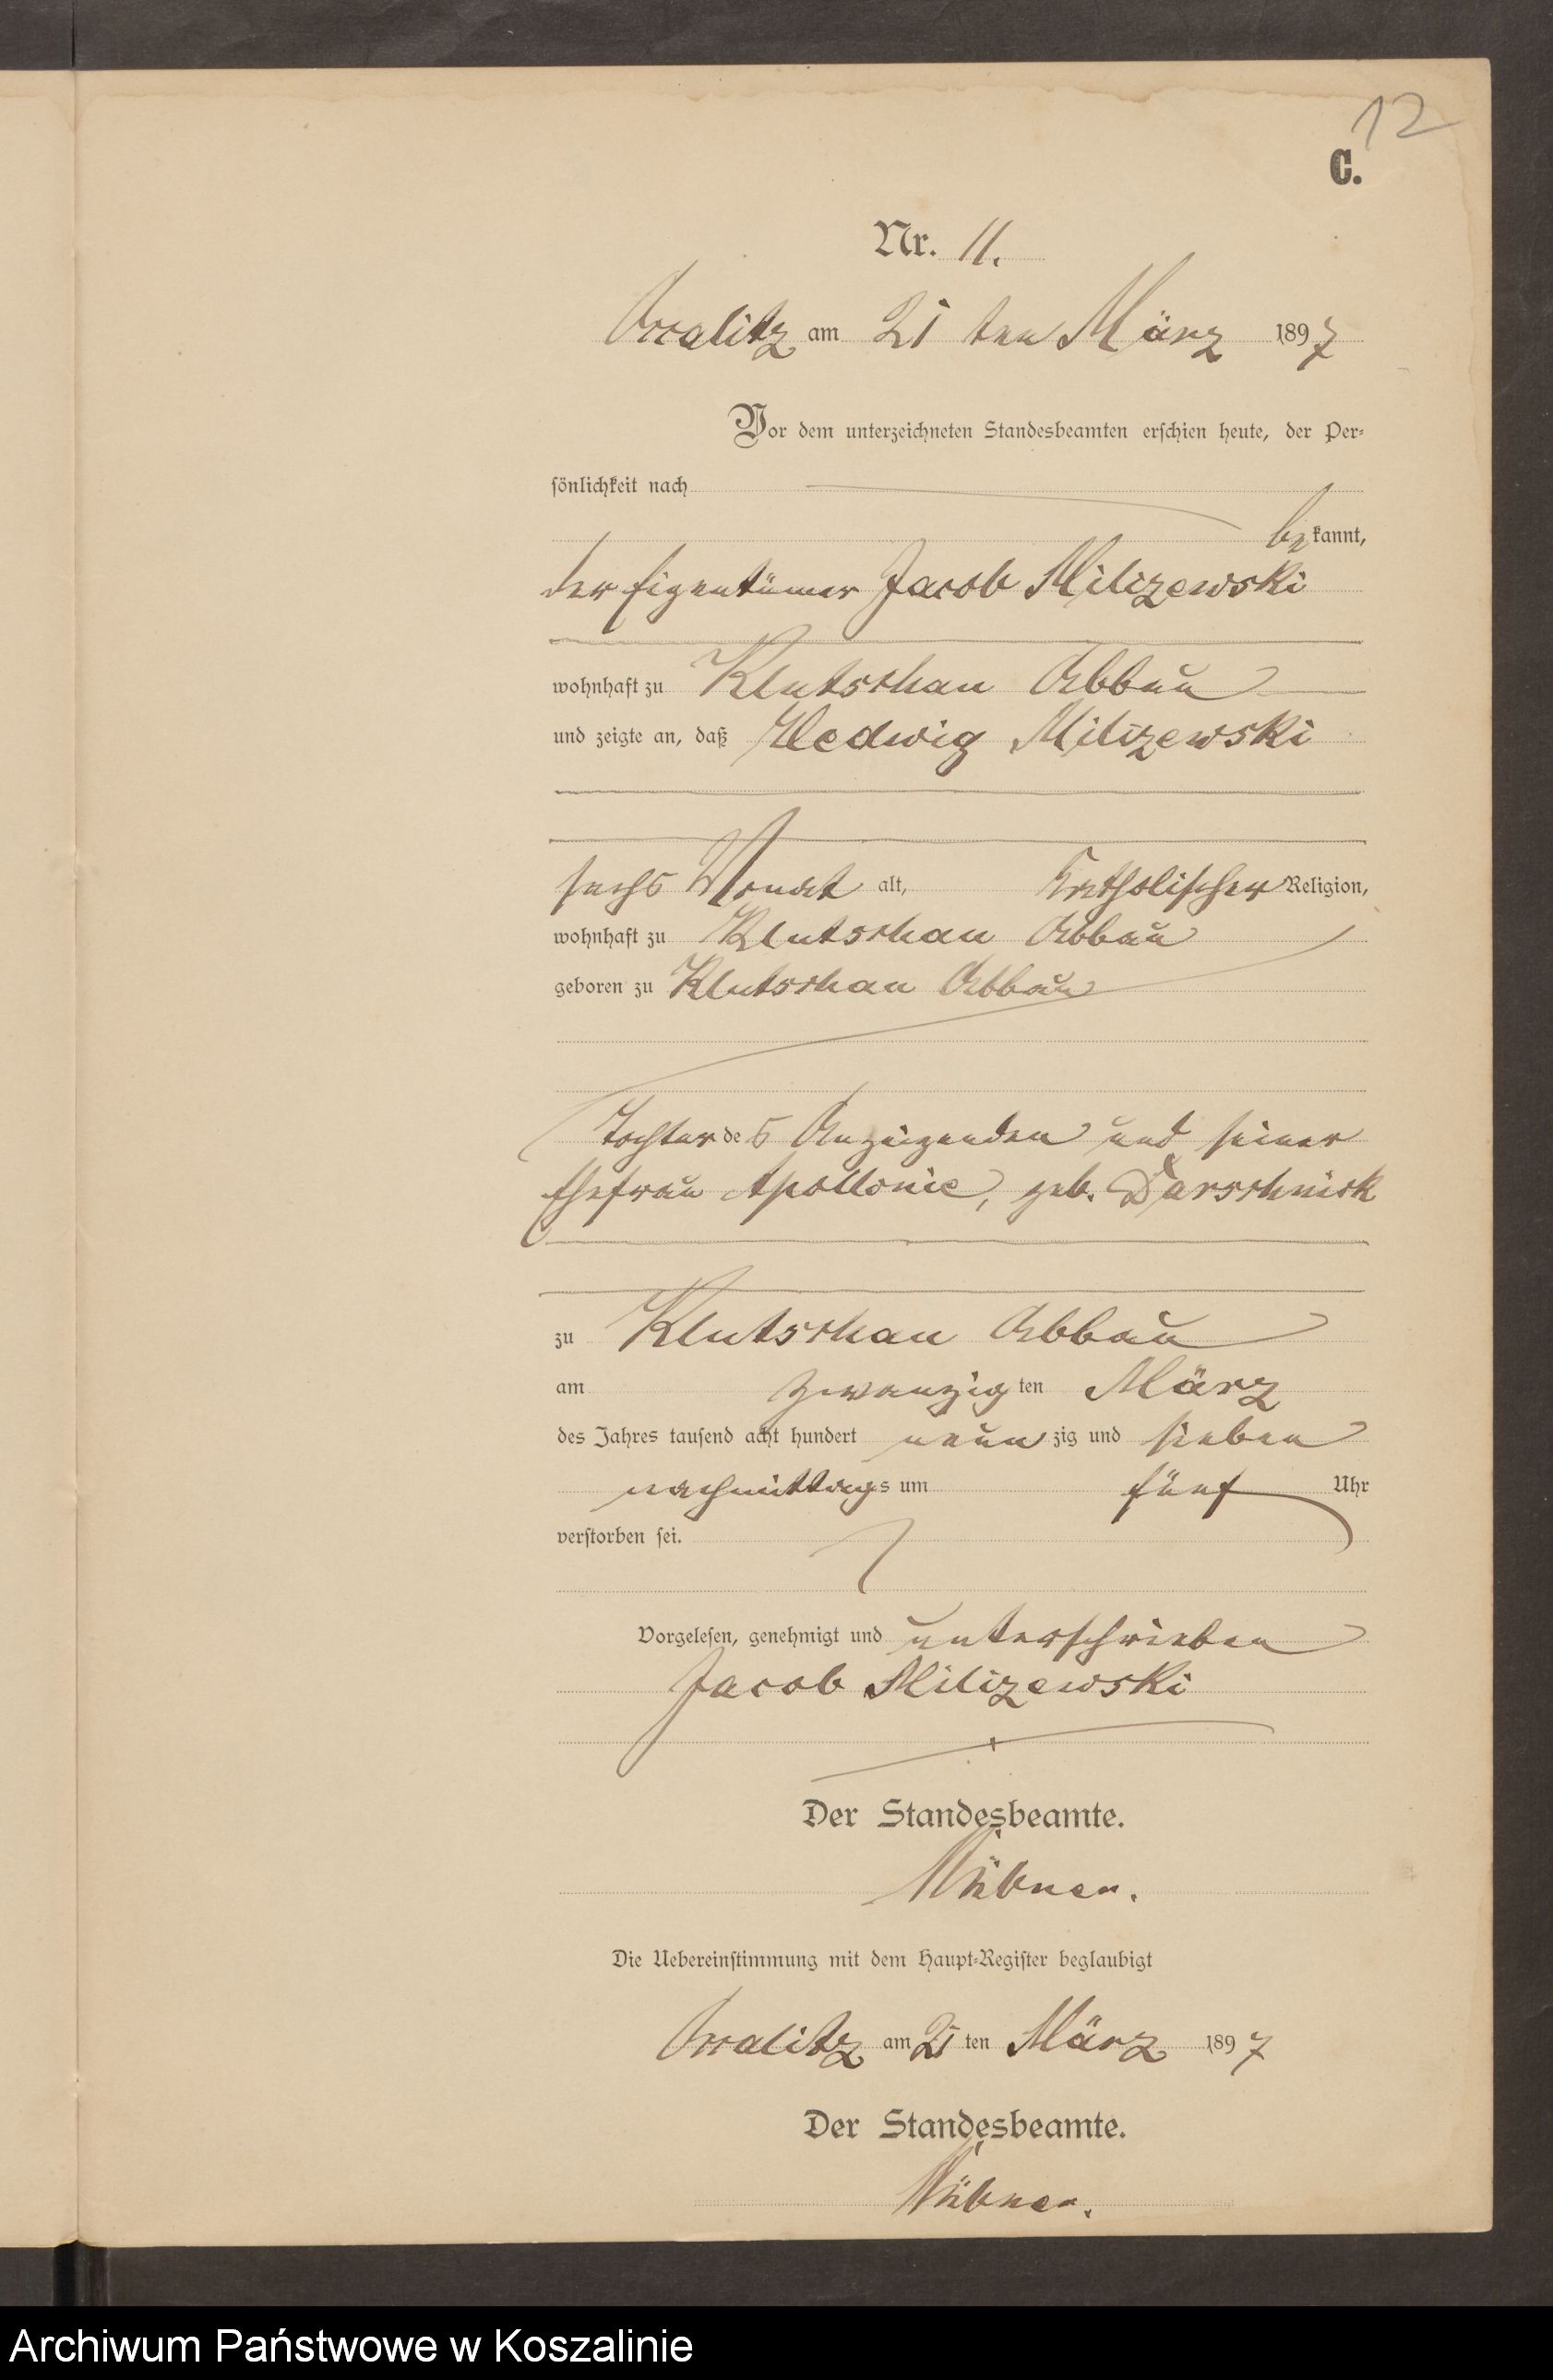 12
C.
Nr. 11.
Ossalitz am 21 ten März 1897
Vor dem unterzeichneten Standesbeamten erschien heute, der Per-
sönlichkeit nach
bekannt,
der Eigentümer Jacob Milizewski
wohnhaft zu Klutschau Abbau
und zeigte an, daß Hedwig Milizewski
sechs Monat alt, katholischer Religion,
wohnhaft zu Klutschau Abbau
geboren zu Klutschau Abbau
Tochter des Anzeigenden und seiner
Ehefrau Apollonie, geb. Darschnick
zu Klutschau Abbau
am zwanzigten März
des Jahres tausend acht hundert neunzig und sieben
nachmittags um fünf Uhr
verstorben sei.
Vorgelesen, genehmigt und unterschrieben
Jacob Milizewski
Der Standesbeamte.
Die Uebereinstimmung mit dem Haupt-Register beglaubigt
Ossalitz am 21 ten März 1897
Der Standesbeamte.
Archiwum Państwowe w Koszalinie